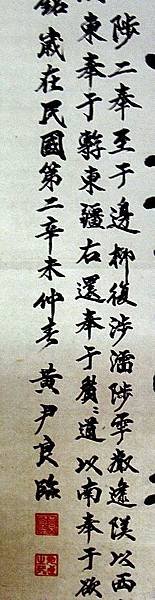 陟二奉至于邊柳後涉濡陟雩以西
東奉于東疆右還奉于道以南奉于欲
銘歲在民國第二辛未仲春 黃尹良臨